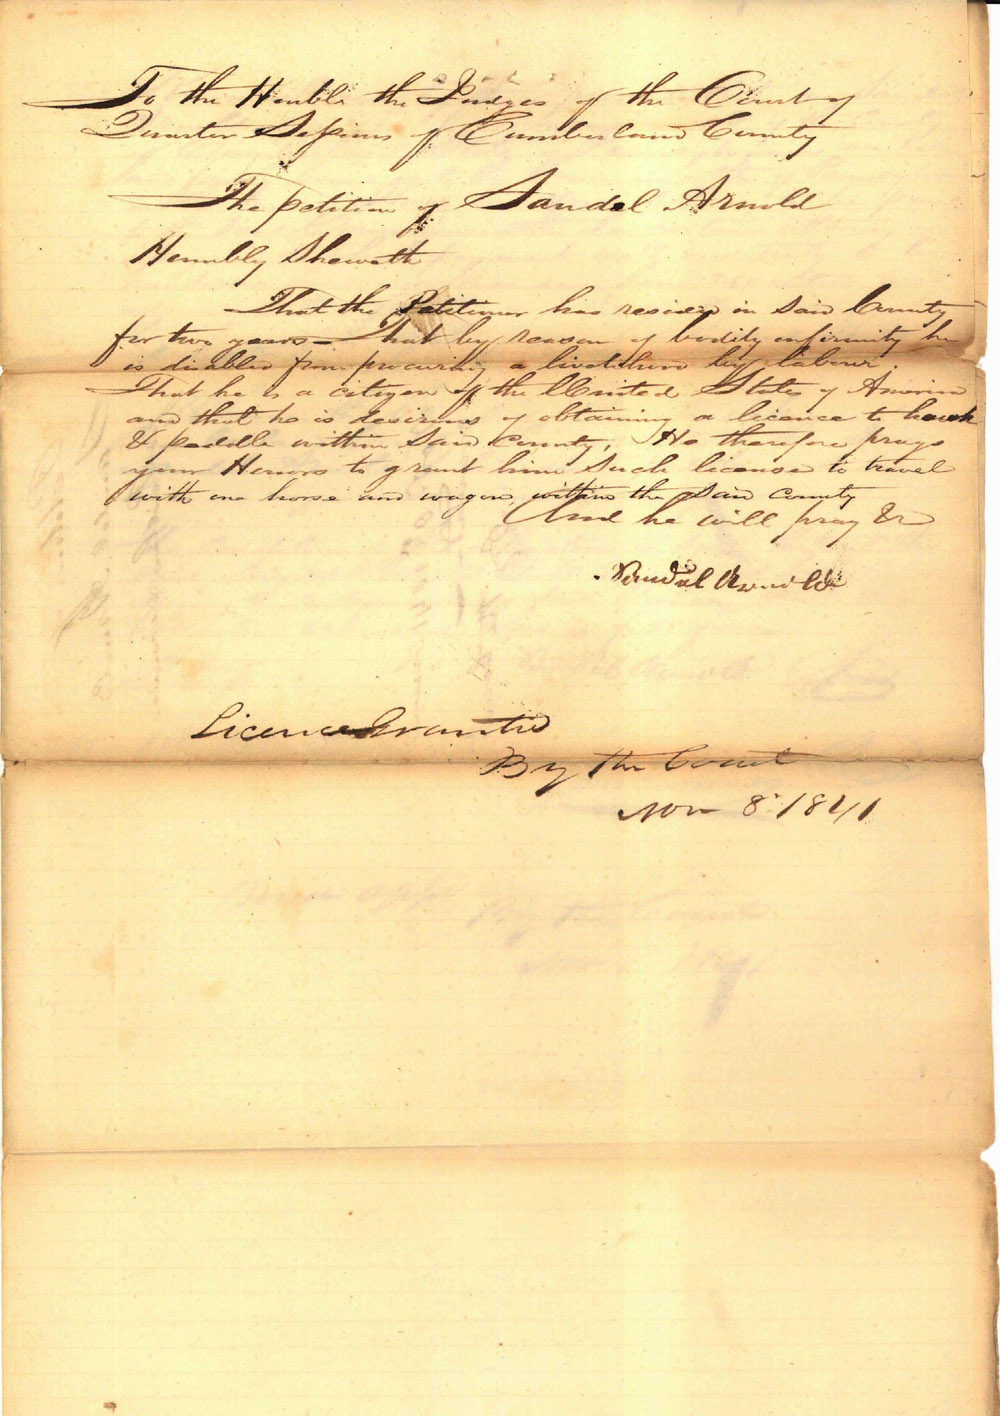 To the Honble the Judges of the Court of
Quarter Sessions of Cumberland County
The petition of Sandel Arnold
Humbly Sheweth
That the Petitioner has resided in said County
for two years – That by reason of bodily infirmity he
is disabled from procuring a livelihood by labour.
That he is a citizen of the United States of America
and that he is desirous of obtaining a licence to hawk
& peddle within said County. He therefore prays
your Honors to grant him such license to travel
with one horse and wagon within the said county
And he will pray &c
Sandel Arnold
Licence Granted
By the Court
Nov 8 1841